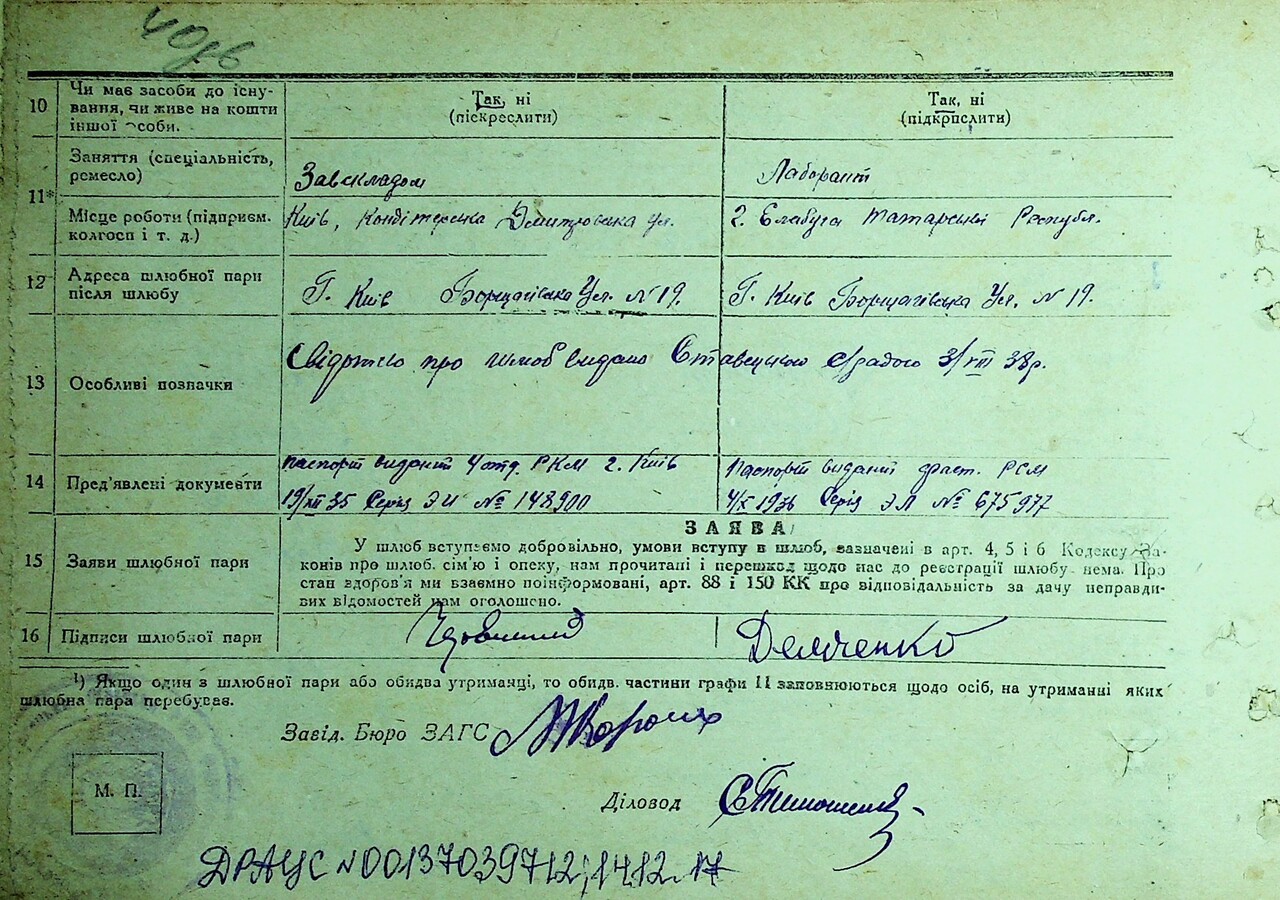 10 Чи має засоби до існу-
вання, чи живе на кошти
іншої особи.
Так, ні
(піскреслити)
Так, ні
(підкрпслити)
11* Заняття (спеціальність,
ремесло)
Завскладом
Лаборант
Місце роботи (підприєм.
колгосп і т. д.)
Київ, Кондітерська Дмитровська ул.
г. Елабуга Татарської Республ.
12 Адреса шлюбної пари
після шлюбу
Г. Київ Борщагівська Ул. N 19.
Г. Київ Борщагівська Ул. N 19.
13 Особливі позначки
про шлюб видано Ставецькою 3/VIII 38р.
14 Пред'явлені документи
паспорт виданий 4 отд. РКМ г. Київ
19/XII 35 Серія ЭИ № 148900
Паспорт виданий РСМ
4/X 1936 Серія ЭЛ № 675977
15 Заяви шлюбної пари
ЗАЯВА
У шлюб вступаємо добровільно, умови вступу в шлюб, зазначені в арт. 4, 5 і 6 Кодексу За-
конів про шлюб. сім'ю і опеку, нам прочитані і перешкод щодо нас до реєстрації шлюбу нема. Про
стан здоров'я ми взаємно поінформовані, арт. 88 і 150 КК про відповідальність за дачу неправди-
вих відомостей нам оголошено.
16 Підписи шлюбної пари
Демченко
¹) Якщо один з шлюбної пари або обидва утриманці, то обидв. частини графи 11 заповнюються щодо осіб, на утриманні яких
шлюбна пара перебуває.
Завід. Бюро ЗАГС
М. П.
Діловод
ДРАЦС N00137039712; 14.12.17